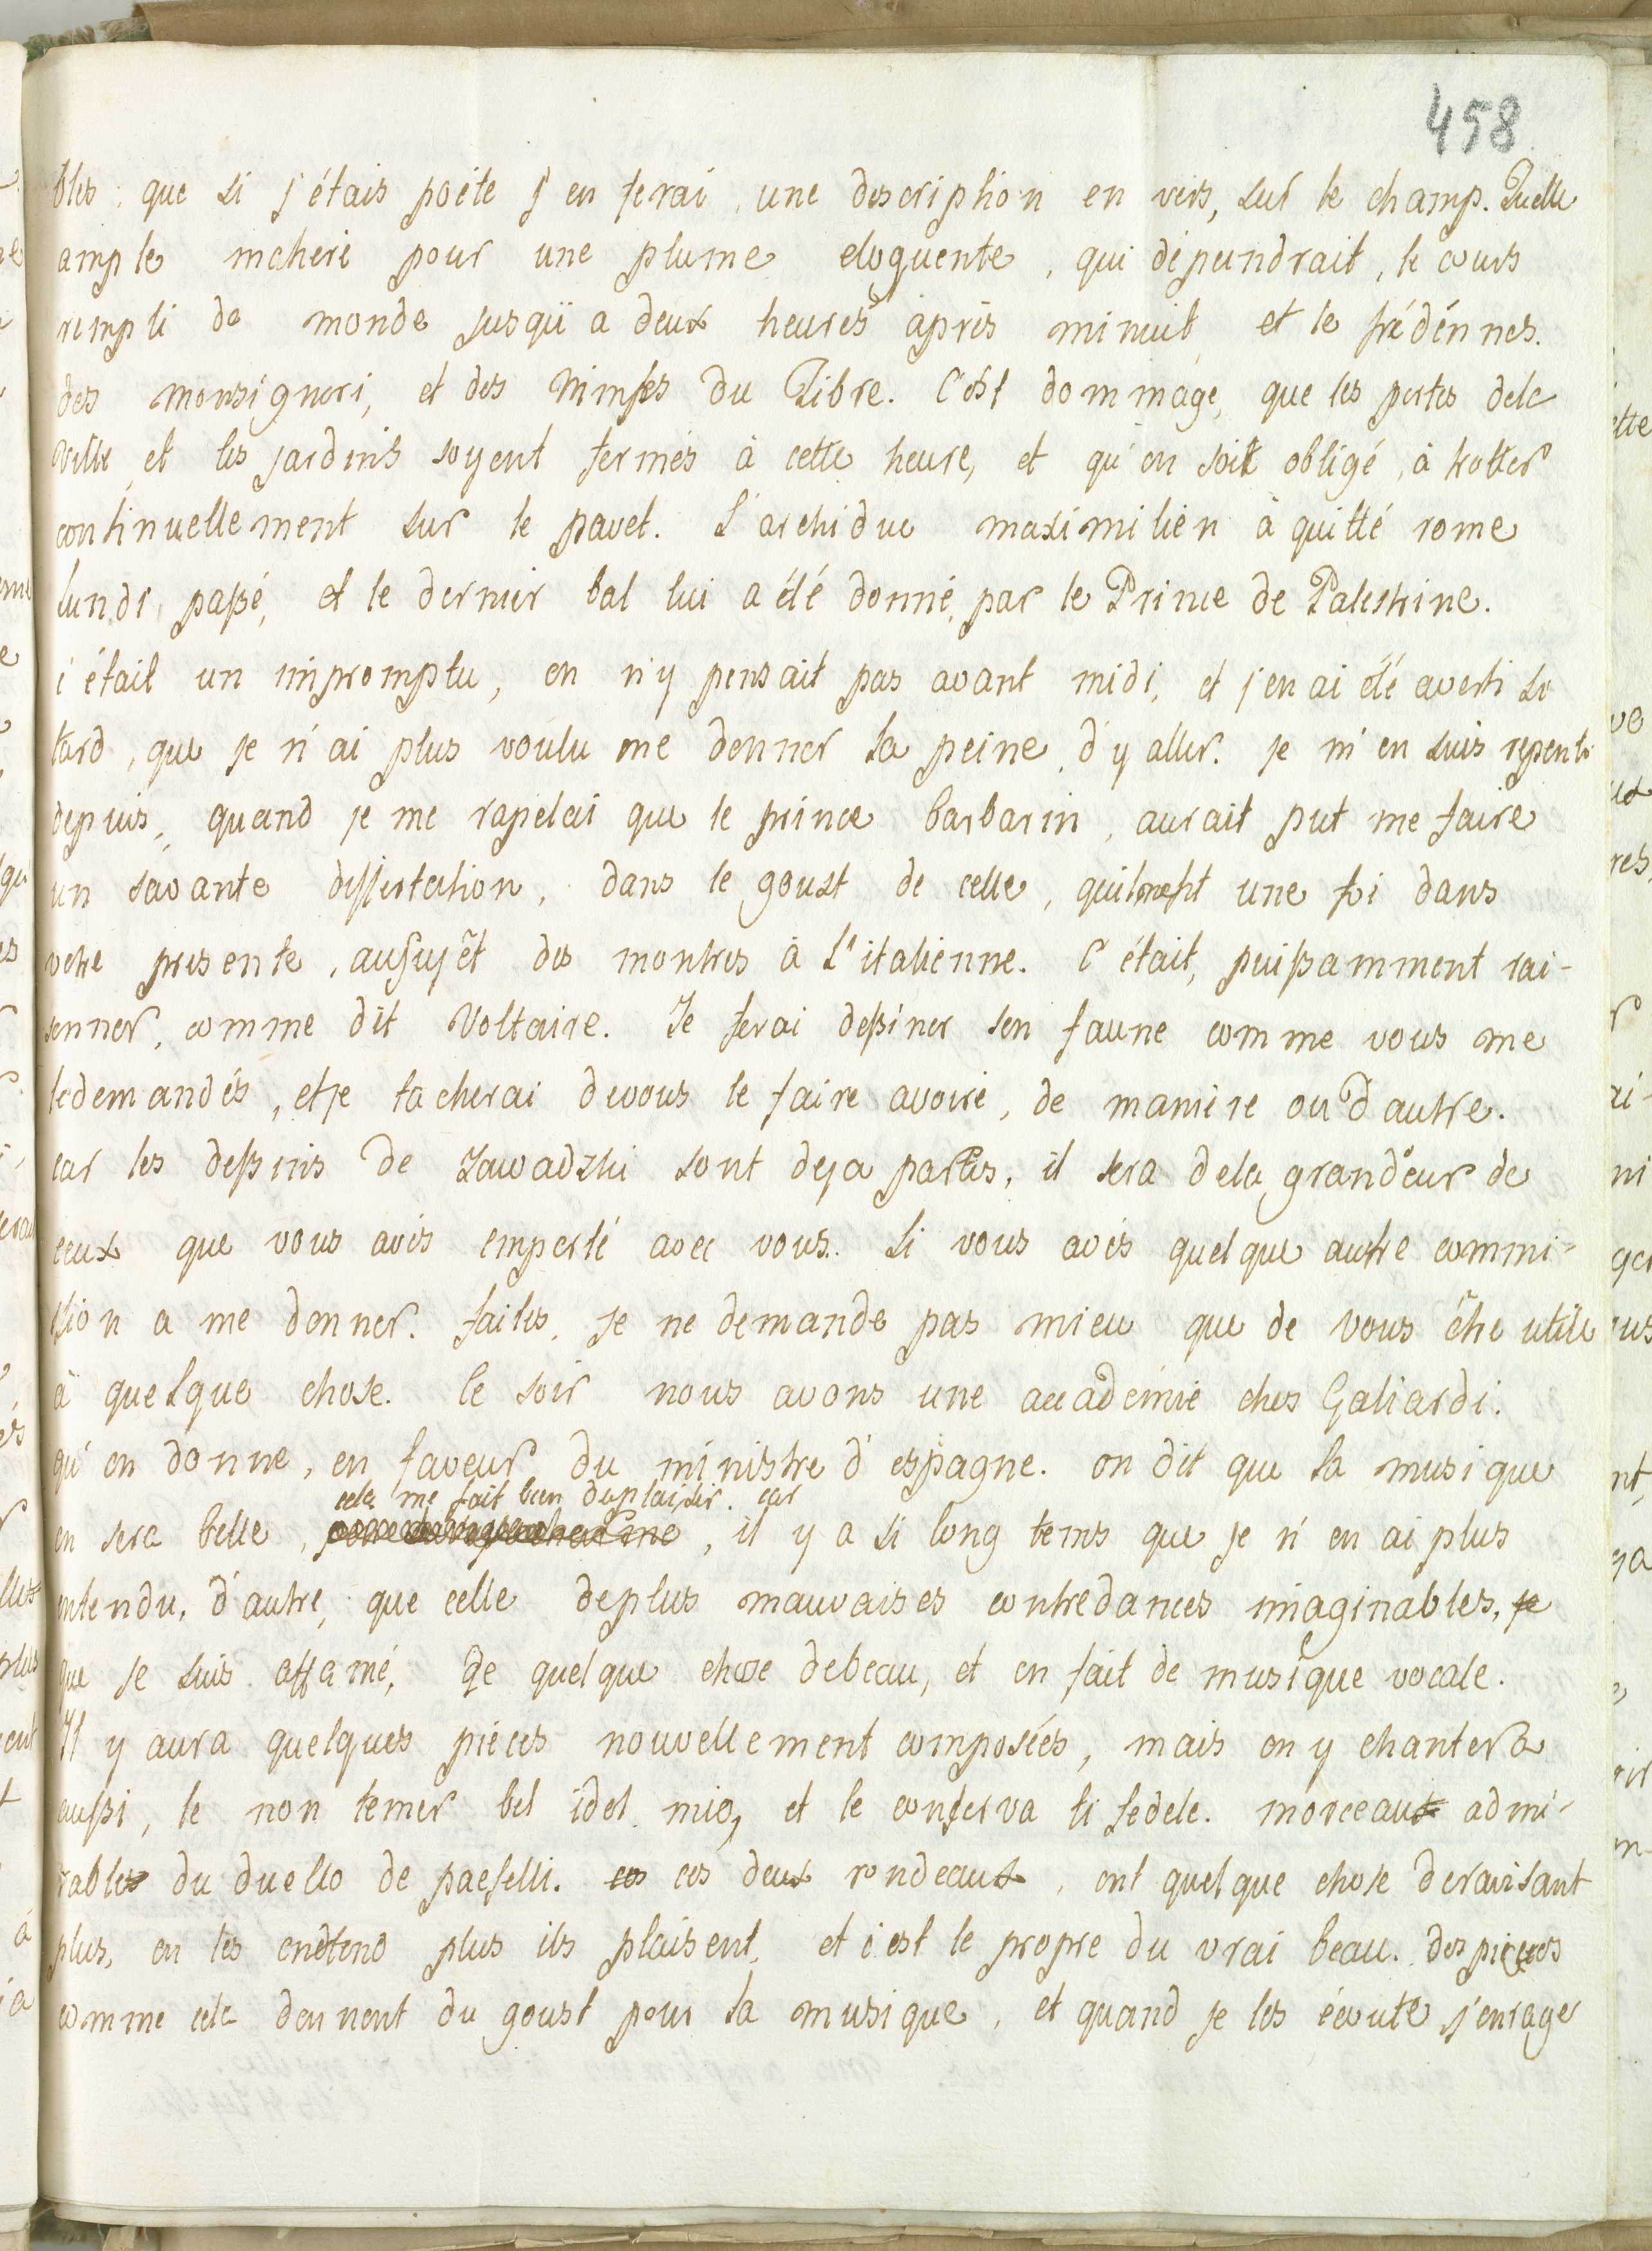 458
bles que si j'étais poéte j'en ferai une description en vers, sur le champ. Quelle
ample matierè pour une plume eloquente, qui dépeindrait, le cours
rempli de monde jusqü a deux heures aprés minuit et le frédénnes.
des monsigneri, et des Nimfes du Tibre. C'est dommage, que les portes dela
Ville et les jardins soyent fermés à cette heure, et qu'on soit obligé à trotter
continuellement sur le pavet. L'archiduc maximilien à quitté rome
lundi paßé, et le dernier bal lui a été donné par le Prince de Palestrine.
c'était un impromptu, on n'y pensait pas avant midi, et j'en ai été averti si
tard, que je n'ai plus voulu me donner la peine d'y aller. je m'en suis repenti
depuis, quand je me rapelai que le prince barbarin, aurait put me faire
un savante dissertation, dans le goust de celle, quil me fit une foi dans
votre presente, ausujêt des montres à L'italienne. C'était, puißamment rai-
sonner, comme dit Voltaire. Je ferai deßiner son faune comme vous me
ledemandés, et je tacherai devous le faire avoire, de maniere ou d'autre.
car les deßins de Zawadzki sont deja partis, il sera dela grandeur de
ceux que vous avés emporté avec vous. Si vous avés quelque autre commi-
ssion a me donner. faites, je ne demande pas mieu que de vous être utile
à quelque chose. Ce soir nous avons une accadémie ches Galiardi.
qu'on donne, en faveur du ministre d'espagne. on dit que la musique
cela me fait bien duplaisir. car
en sera belle, il y a si long tems que je n'en ai plus
entendu, d'autre, que celle deplus mauvaises contredances imaginables, je
que je suis affamé, de quelque chose debeau, et en fait de musique vocale.
Il y aura quelques piéces nouvellement composées, mais on y chantera
außi, le non temer bel idol mio, et le conserva ti fedele. morceaux admi-
rables du duello de paeselli. ces ces deux rondeaux, ont quelque chose deravisant
plus, on les entend plus ils plaisent, et c'est le propre du vrai beau. des pieces
comme cela donnent du goust pour la musique, et quand je les écoute j'enrage